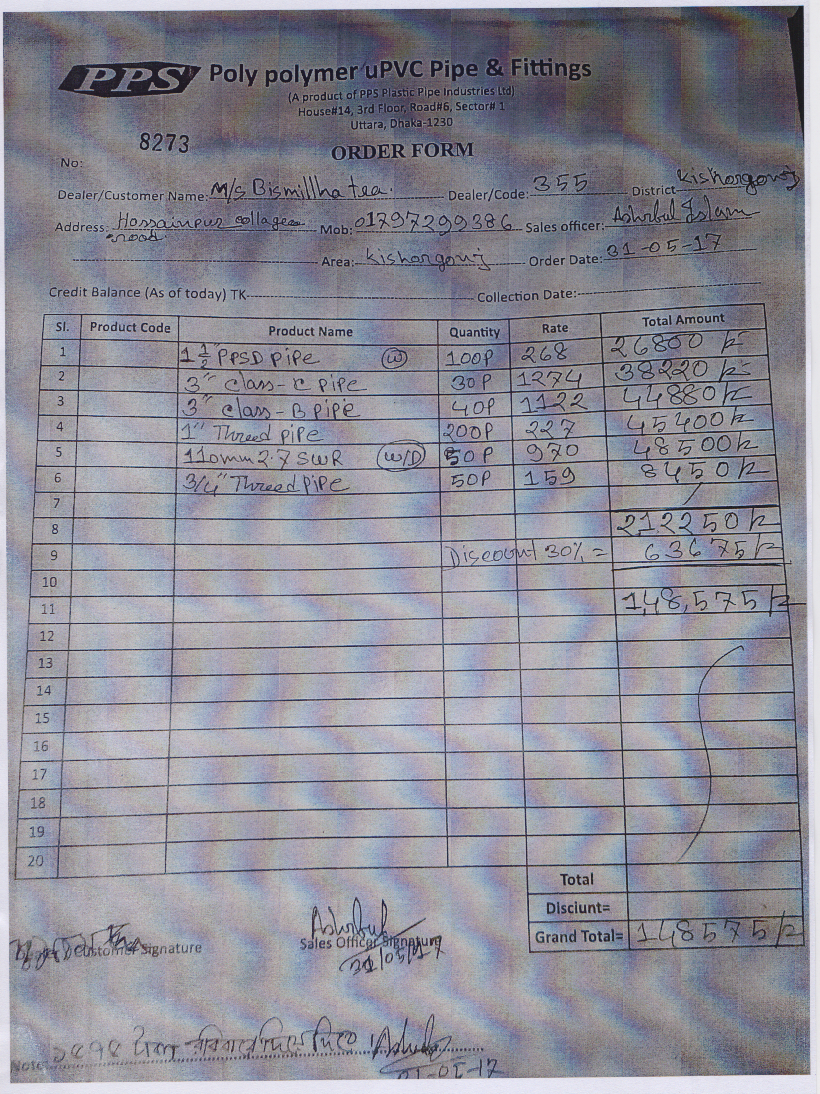 PPS Poly polymer uPVC Pipe & Fittings
(A product of PPS Plastic Pipe Industries Ltd)
House#14, 3rd Floor, Road#6, Sector# 1
Uttara, Dhaka-1230
8273
ORDER FORM
No:
Dealer/Customer Name: M/s Bismillha tea. Dealer/Code: 355 District Kishorgonj
Address: Hossainpur collage Mob: 01797299386 Sales officer: Ashrbul Islam
road. Area: Kishorgonj Order Date: 31-05-17
Credit Balance (As of today) TK Collection Date:
Sl. Product Code Product Name Quantity Rate Total Amount
1 1 1/2" PPSD pipe (W) 100P 268 26800/=
2 3" class-C pipe 30P 1274 38220/=
3 3" class-B pipe 40P 1122 44880/=
4 1" Threed pipe 200P 227 45400/=
5 110mm 2.7 SWR (W/D) 50P 970 48500/=
6 3/4" Threed pipe 50P 159 8450/=
7
8 212250/=
9 Discount 30% = 63675/=
10
11 1,48,575/=
12
13
14
15
16
17
18
19
20
Total
Disciunt=
Grand Total= 148575/=
Customer Signature
Ashrbul
Sales Officer Signature
31/05/17
Note: